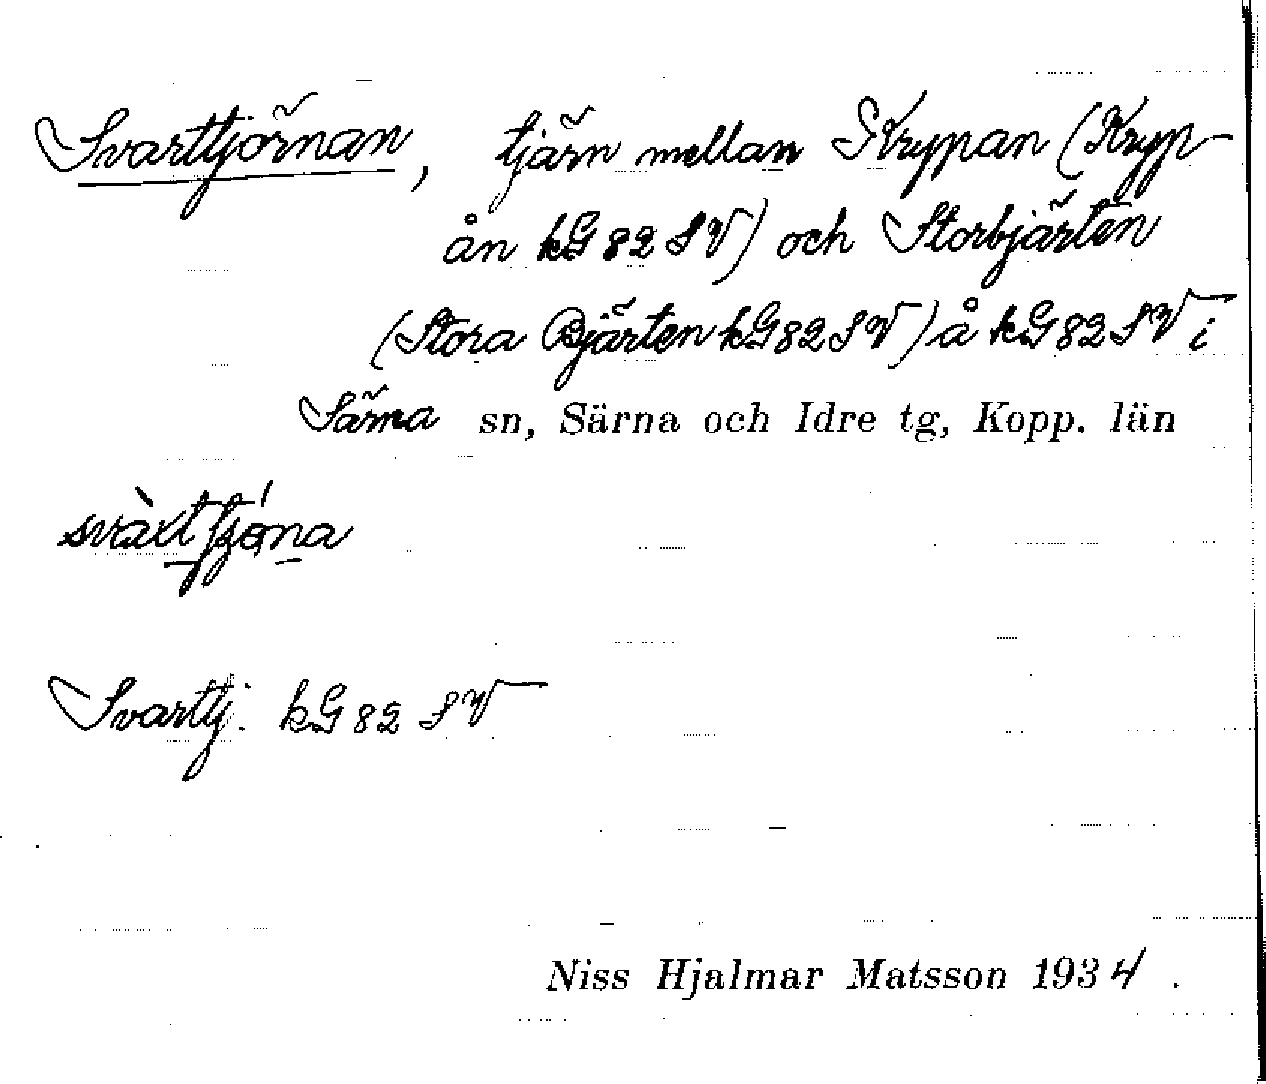 Svarttjörnan, tjärn mellan Krypan (Kryp-
ån kG 82 SV) och Storbjärten
(Stora Bjärten kG 82 SV) å kG 82 SV i
Särna sn, Särna och Idre tg, Kopp. län
Svarttj. kG 82 SV
Niss Hjalmar Matsson 1934.